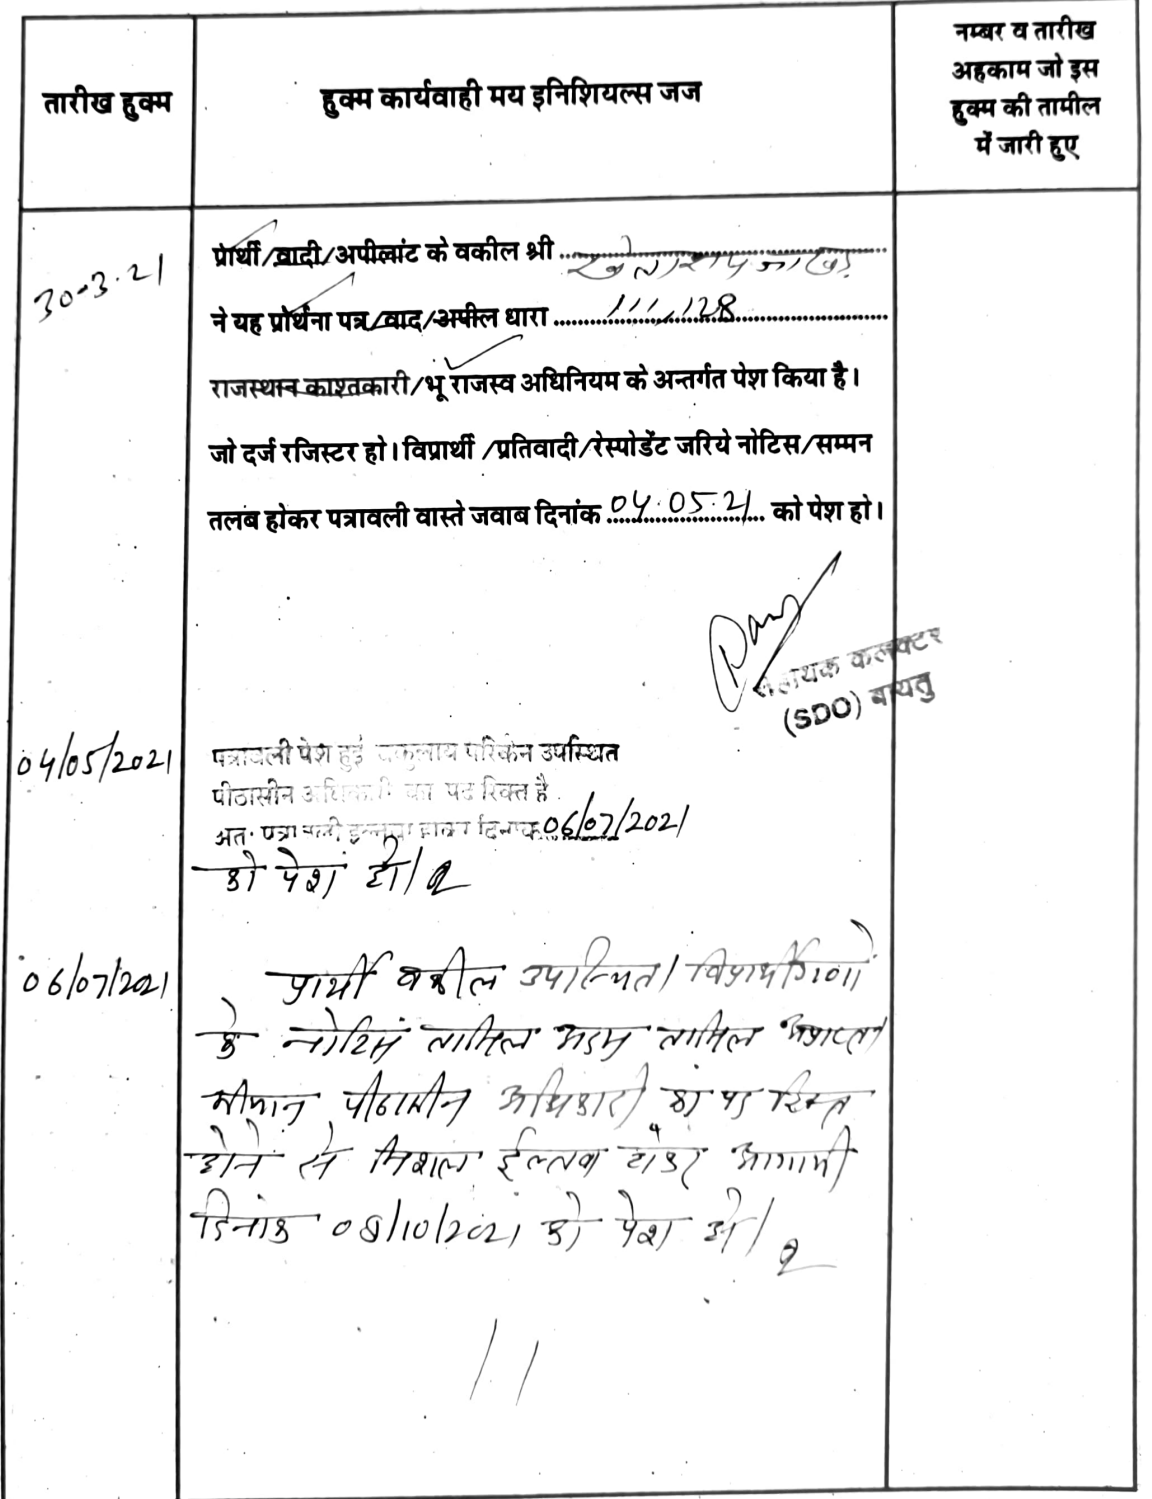 तारीख हुक्म
हुक्म कार्यवाही मय इनिशियल्स जज
नम्बर व तारीख
अहकाम जो इस
हुक्म की तामील
में जारी हुए
30-3-21
प्रार्थी/वादी/अपीलांट के वकील श्री
ने यह प्रार्थना पत्र/वाद/अपील धारा 111, 128
राजस्थान काश्तकारी/भू राजस्व अधिनियम के अन्तर्गत पेश किया है।
जो दर्ज रजिस्टर हो। विप्रार्थी/प्रतिवादी/रेस्पोडेंट जरिये नोटिस/सम्मन
तलब होकर पत्रावली वास्ते जवाब दिनांक 04.05.21 को पेश हो।
सहायक कलक्टर
(SDO) बायतु
04/05/2021
पत्रावली पेश हुई वकुलाय फरिकेन उपस्थित
पीठासीन अधिकारी का पद रिक्त है
अतः पत्रावली इल्तवा होकर दिनांक 06/07/2021
को पेश हो।
06/07/2021
प्रार्थी वकील उपस्थित। विप्रार्थीगणों
के नोटिस तामिल अदम तामिल अप्राप्त।
श्रीमान पीठासीन अधिकारी का पद रिक्त
होने से मिशल ईल्तवा होकर आगामी
दिनांक 08/10/2021 को पेश हो।